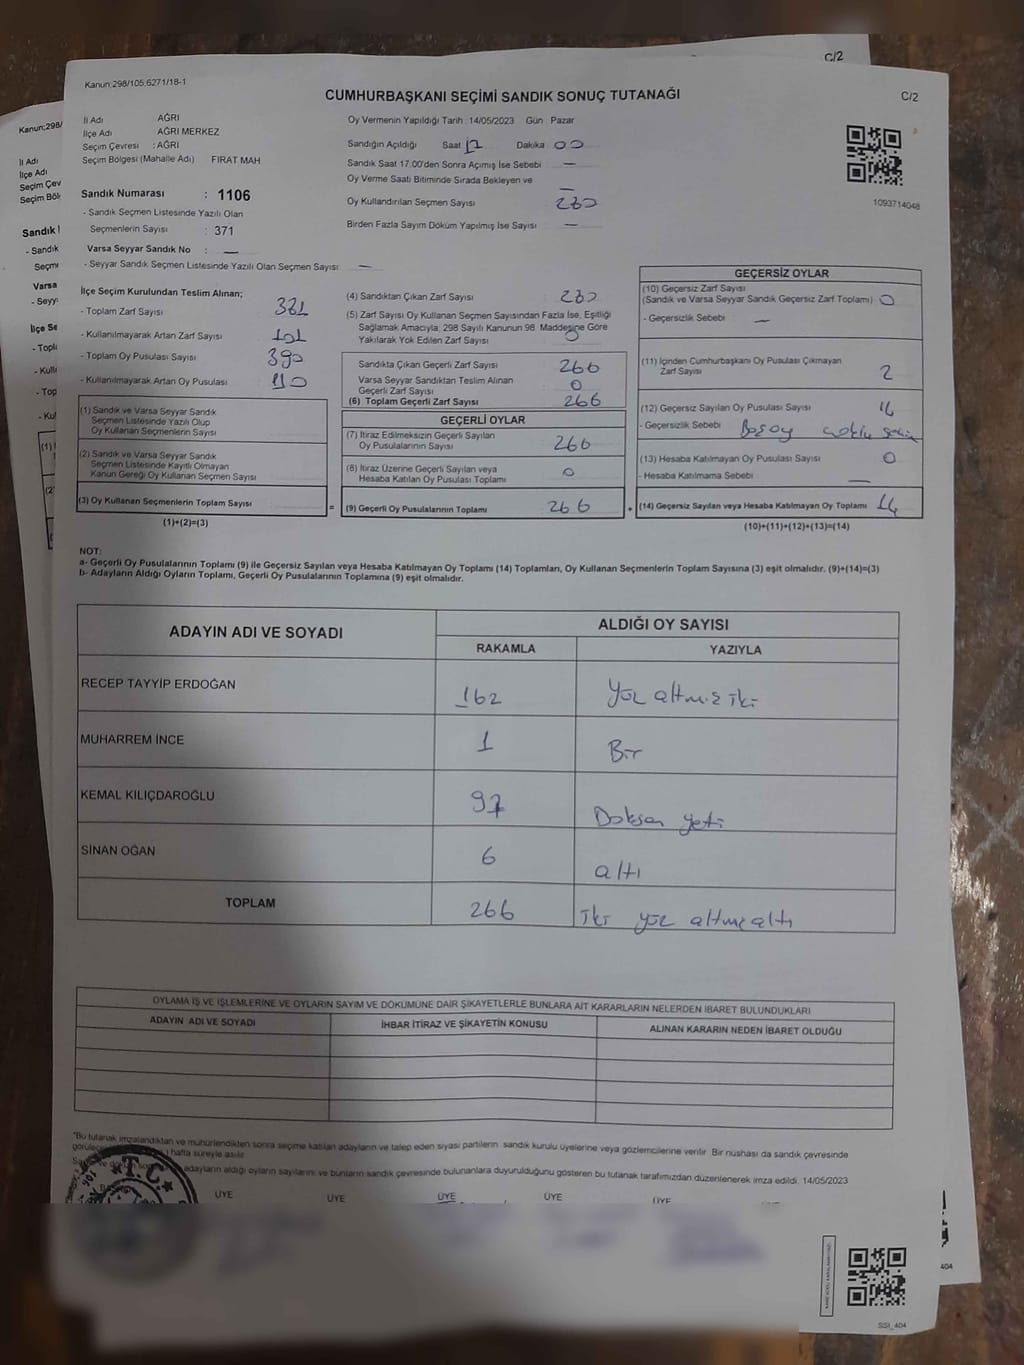 C/2
Kanun:298/105.6271/18-1
C/2
CUMHURBAŞKANI SEÇİMİ SANDIK SONUÇ TUTANAĞI
Kanun;298/
İl Adı AĞRI
İlçe Adı AĞRI MERKEZ
Seçim Çevresi : AĞRI
Seçim Bölgesi (Mahalle Adı) FIRAT MAH
Sandık Numarası : 1106
- Sandık Seçmen Listesinde Yazılı Olan
Seçmenlerin Sayısı : 371
Varsa Seyyar Sandık No : —
- Seyyar Sandık Seçmen Listesinde Yazılı Olan Seçmen Sayısı —
Oy Vermenin Yapıldığı Tarih :14/05/2023 Gün Pazar
Sandığın Açıldığı Saat 17 Dakika 00
Sandık Saat 17:00'den Sonra Açımış İse Sebebi —
Oy Verme Saati Bitiminde Sırada Bekleyen ve —
Oy Kullandırılan Seçmen Sayısı 280
Birden Fazla Sayım Döküm Yapılmış İse Sayısı —
1093714048
İlçe Seçim Kurulundan Teslim Alınan;
- Toplam Zarf Sayısı 381
- Kullanılmayarak Artan Zarf Sayısı 101
- Toplam Oy Pusulası Sayısı 390
- Kullanılmayarak Artan Oy Pusulası 110
(1) Sandık ve Varsa Seyyar Sandık
Seçmen Listesinde Yazılı Olup
Oy Kullanan Seçmenlerin Sayısı
(2) Sandık ve Varsa Seyyar Sandık
Seçmen Listesinde Kayıtlı Olmayan
Kanun Gereği Oy Kullanan Seçmen Sayısı
(3) Oy Kullanan Seçmenlerin Toplam Sayısı
(1)+(2)=(3)
(4) Sandıktan Çıkan Zarf Sayısı 280
(5) Zarf Sayısı Oy Kullanan Seçmen Sayısından Fazla İse, Eşitliği
Sağlamak Amacıyla; 298 Sayılı Kanunun 98. Maddesine Göre
Yakılarak Yok Edilen Zarf Sayısı 0
Sandıkta Çıkan Geçerli Zarf Sayısı 266
Varsa Seyyar Sandıktan Teslim Alınan
Geçerli Zarf Sayısı 0
(6) Toplam Geçerli Zarf Sayısı 266
GEÇERLİ OYLAR
(7) İtiraz Edilmeksizin Geçerli Sayılan
Oy Pusulalarının Sayısı 266
(8) İtiraz Üzerine Geçerli Sayılan veya
Hesaba Katılan Oy Pusulası Toplamı 0
= (9) Geçerli Oy Pusulalarının Toplamı 266
GEÇERSİZ OYLAR
(10) Geçersiz Zarf Sayısı
(Sandık ve Varsa Seyyar Sandık Geçersiz Zarf Toplamı) 0
- Geçersizlik Sebebi —
(11) İçinden Cumhurbaşkanı Oy Pusulası Çıkmayan
Zarf Sayısı 2
(12) Geçersiz Sayılan Oy Pusulası Sayısı
- Geçersizlik Sebebi
(13) Hesaba Katılmayan Oy Pusulası Sayısı 0
- Hesaba Katılmama Sebebi —
+ (14) Geçersiz Sayılan veya Hesaba Katılmayan Oy Toplamı 14
(10)+(11)+(12)+(13)=(14)
NOT:
a- Geçerli Oy Pusulalarının Toplamı (9) ile Geçersiz Sayılan veya Hesaba Katılmayan Oy Toplamı (14) Toplamları, Oy Kullanan Seçmenlerin Toplam Sayısına (3) eşit olmalıdır. (9)+(14)=(3)
b- Adayların Aldığı Oyların Toplamı, Geçerli Oy Pusulalarının Toplamına (9) eşit olmalıdır.
ADAYIN ADI VE SOYADI ALDIĞI OY SAYISI
RAKAMLA YAZIYLA
RECEP TAYYİP ERDOĞAN 162 Yüz altmış iki
MUHARREM İNCE 1 Bir
KEMAL KILIÇDAROĞLU 97 Doksan yedi
SİNAN OĞAN 6 altı
TOPLAM 266 iki yüz altmışaltı
OYLAMA İŞ VE İŞLEMLERİNE VE OYLARIN SAYIM VE DÖKÜMÜNE DAİR ŞİKAYETLERLE BUNLARA AİT KARARLARIN NELERDEN İBARET BULUNDUKLARI
ADAYIN ADI VE SOYADI İHBAR İTİRAZ VE ŞİKAYETİN KONUSU ALINAN KARARIN NEDEN İBARET OLDUĞU
"Bu tutanak imzalandıktan ve mühürlendikten sonra seçime katılan adayların ve talep eden siyasi partilerin sandık kurulu üyelerine veya gözlemcilerine verilir. Bir nüshası da sandık çevresinde
hafta süreyle asılır.
adayların aldığı oyların sayılarını ve bunların sandık çevresinde bulunanlara duyurulduğunu gösteren bu tutanak tarafımızdan düzenlenerek imza edildi. 14/05/2023
ÜYE ÜYE ÜYE ÜYE ÜYE
T.C
404
SSİ_404